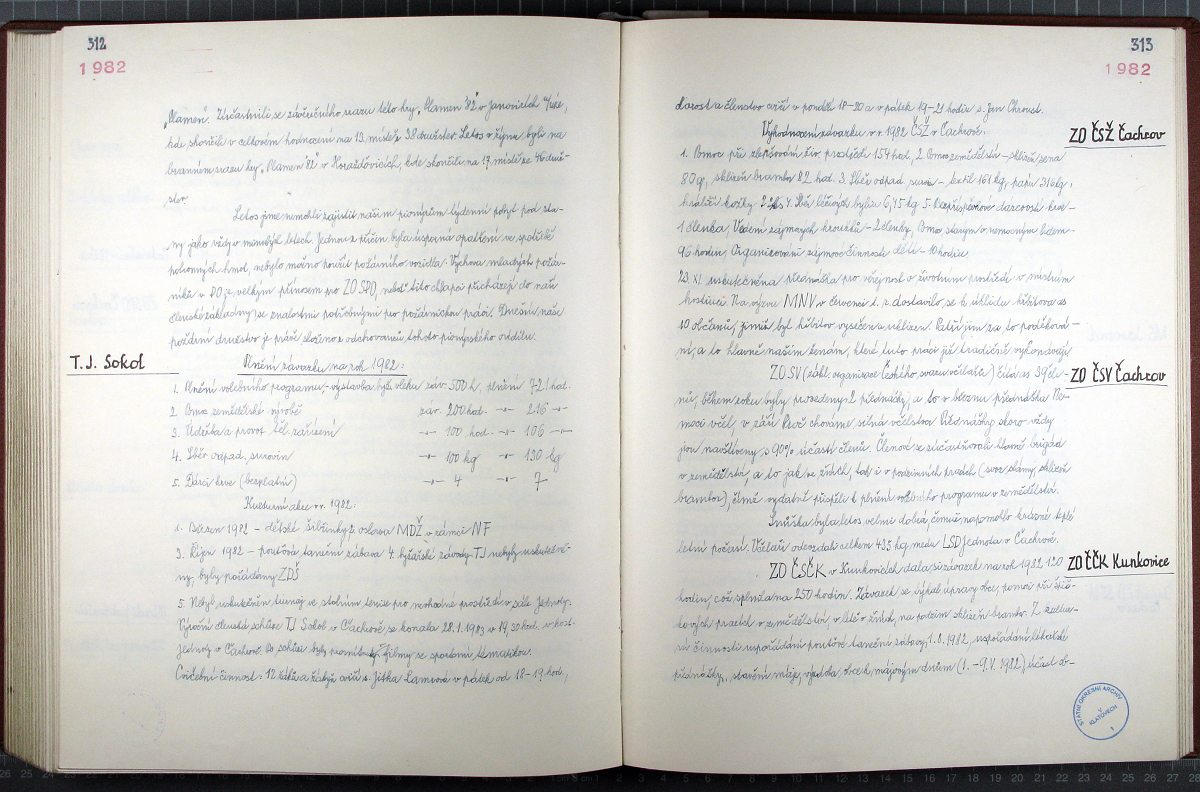 312
1982
„Plamen". Zúčastnili se závěrečného srazu této hry „Plamen 82" v Janovicích n/Úhl.,
kde skončili v celkovém hodnocení na 13. místě z 38 družstev. Letos v říjnu byli na
branném srazu hry „Plamen 82" v Horažďovicích, kde skončili na 17. místě ze 46 druž-
stev.
Letos jsme nemohli zajistit našim pionýrům týdenní pobyt pod sta-
ny jako vždy v minulých letech. Jednou z příčin byla úsporná opatření ve spotřebě
pohonných hmot, nebylo možno použít požárního vozidla. Výchova mladých požár-
níků v PO je velkým přínosem pro ZO SPO, neboť tito chlapci přicházejí do naší
členské základny se znalostmi potřebnými pro požárnickou práci. Dnešní naše
požární družstvo je právě složeno z odchovanců tohoto pionýrského oddílu.
T.J. Sokol
Plnění závazku na rok 1982:
1. Plnění volebního programu - výstavba lyž. vleku záv. 500 h, plnění 721 hod.
2. Pomoc zemědělské výrobě záv. 200 hod. -"- 216 -"-
3. Údržba a provoz těl. zařízení -"- 100 hod. -"- 106 -"-
4. Sběr odpad. surovin -"- 100 kg -"- 130 kg
5. Dárci krve (bezplatní) -"- 4 -"- 7
Kulturní akce v r. 1982:
1. Březen 1982 - dětské šibřinky z oslavy MDŽ v rámci NF
3. Říjen 1982 - pouťová taneční zábava 4. lyžařské závody TJ nebyly uskutečně-
ny, byly pořádány ZDŠ
5. Nebyl uskutečněn turnaj ve stolním tenise pro nevhodné prostředí v sále Jednoty.
Výroční členská schůze TJ Sokol v Čachrově se konala 28.1.1983 v 19,30 hod. v host.
Jednoty v Čachrově. Po schůzi byly promítány filmy se sportovní tematikou.
Cvičební činnost: 12 žáků a žákyň cvičí s. Jitka Lamcová v pátek od 18-19 hod.,
313
1982
dorost a členstvo cvičí v pondělí 18-20 a v pátek 19-21 hodin s. Jan Chroust.
Vyhodnocení závazku v r. 1982 ČSŽ v Čachrově:
ZO ČSŽ Čachrov
1. Pomoc při zlepšování živ. prostředí 154 hod, 2. Pomoc zemědělství - sklizeň sena
80 q, sklizeň brambor 82 hod. 3. Sběr odpad. surovin - textil 161 kg, papír 316 kg,
králičí kožky 4. Sběr léčivých bylin 6,15 kg 5. Bezpříspěvkové dárcovství krve -
1 členka, Vedení zájmových kroužků - 2 členky, Pomoc starým a nemocným lidem -
96 hodin, Organizování zájmové činnosti dětí - 10 hodin.
23. XI. uskutečněna přednáška pro veřejnost o životním prostředí v místním
hostinci. Na výzvu MNV v červenci t. r. dostavilo se k úklidu hřbitova as
10 občanů, jimiž byl hřbitov vysečen a uklizen. Patří jim za to poděková-
ní, a to hlavně našim ženám, které tuto práci již tradičně vykonávají.
ZO SV (zákl. organizace Českého svazu včelařů) čítá as 39 čle-
ZO ČSV Čachrov
nů, během roku byly provedeny 2 přednášky, a to v březnu přednáška Ne-
moci včel, v září Proč chováme silná včelstva. Přednášky skoro vždy
jsou navštíveny s 90% účastí členů. Členové se zúčastňovali hlavně brigád
v zemědělství, a to jak ve žních, tak i v podzimních pracích (svoz slámy, sklizeň
brambor), čímž vydatně přispěli k plnění volebního programu v zemědělství.
Snůška byla letos velmi dobrá, čemuž napomohlo krásné teplé
letní počasí. Včelaři odevzdali celkem 435 kg medu LSD Jednota v Čachrově.
ZO ČSČK v Kunkovicích dala si závazek na rok 1982 120
ZO ČČK Kunkovice
hodin, což splnila na 250 hodin. Závazek se týkal úpravy obce, pomoci při špič-
kových pracích v zemědělství, v létě o žních, na podzim sklizeň brambor. Z kultur-
ní činnosti uspořádání pouťové taneční zábavy, 1. 8. 1982, uspořádání lékařské
přednášky, stavění máje, výzdoba obce k májovým dnům (1. - 9. V. 1982), účast ob-
STÁTNÍ OKRESNÍ ARCHIV
V
KLATOVECH
1